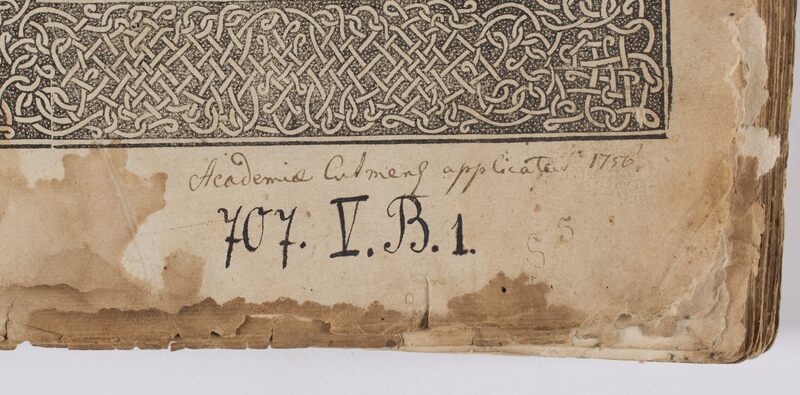 Academiæ Culmensς applicatus 1756
707. V. B. 1.